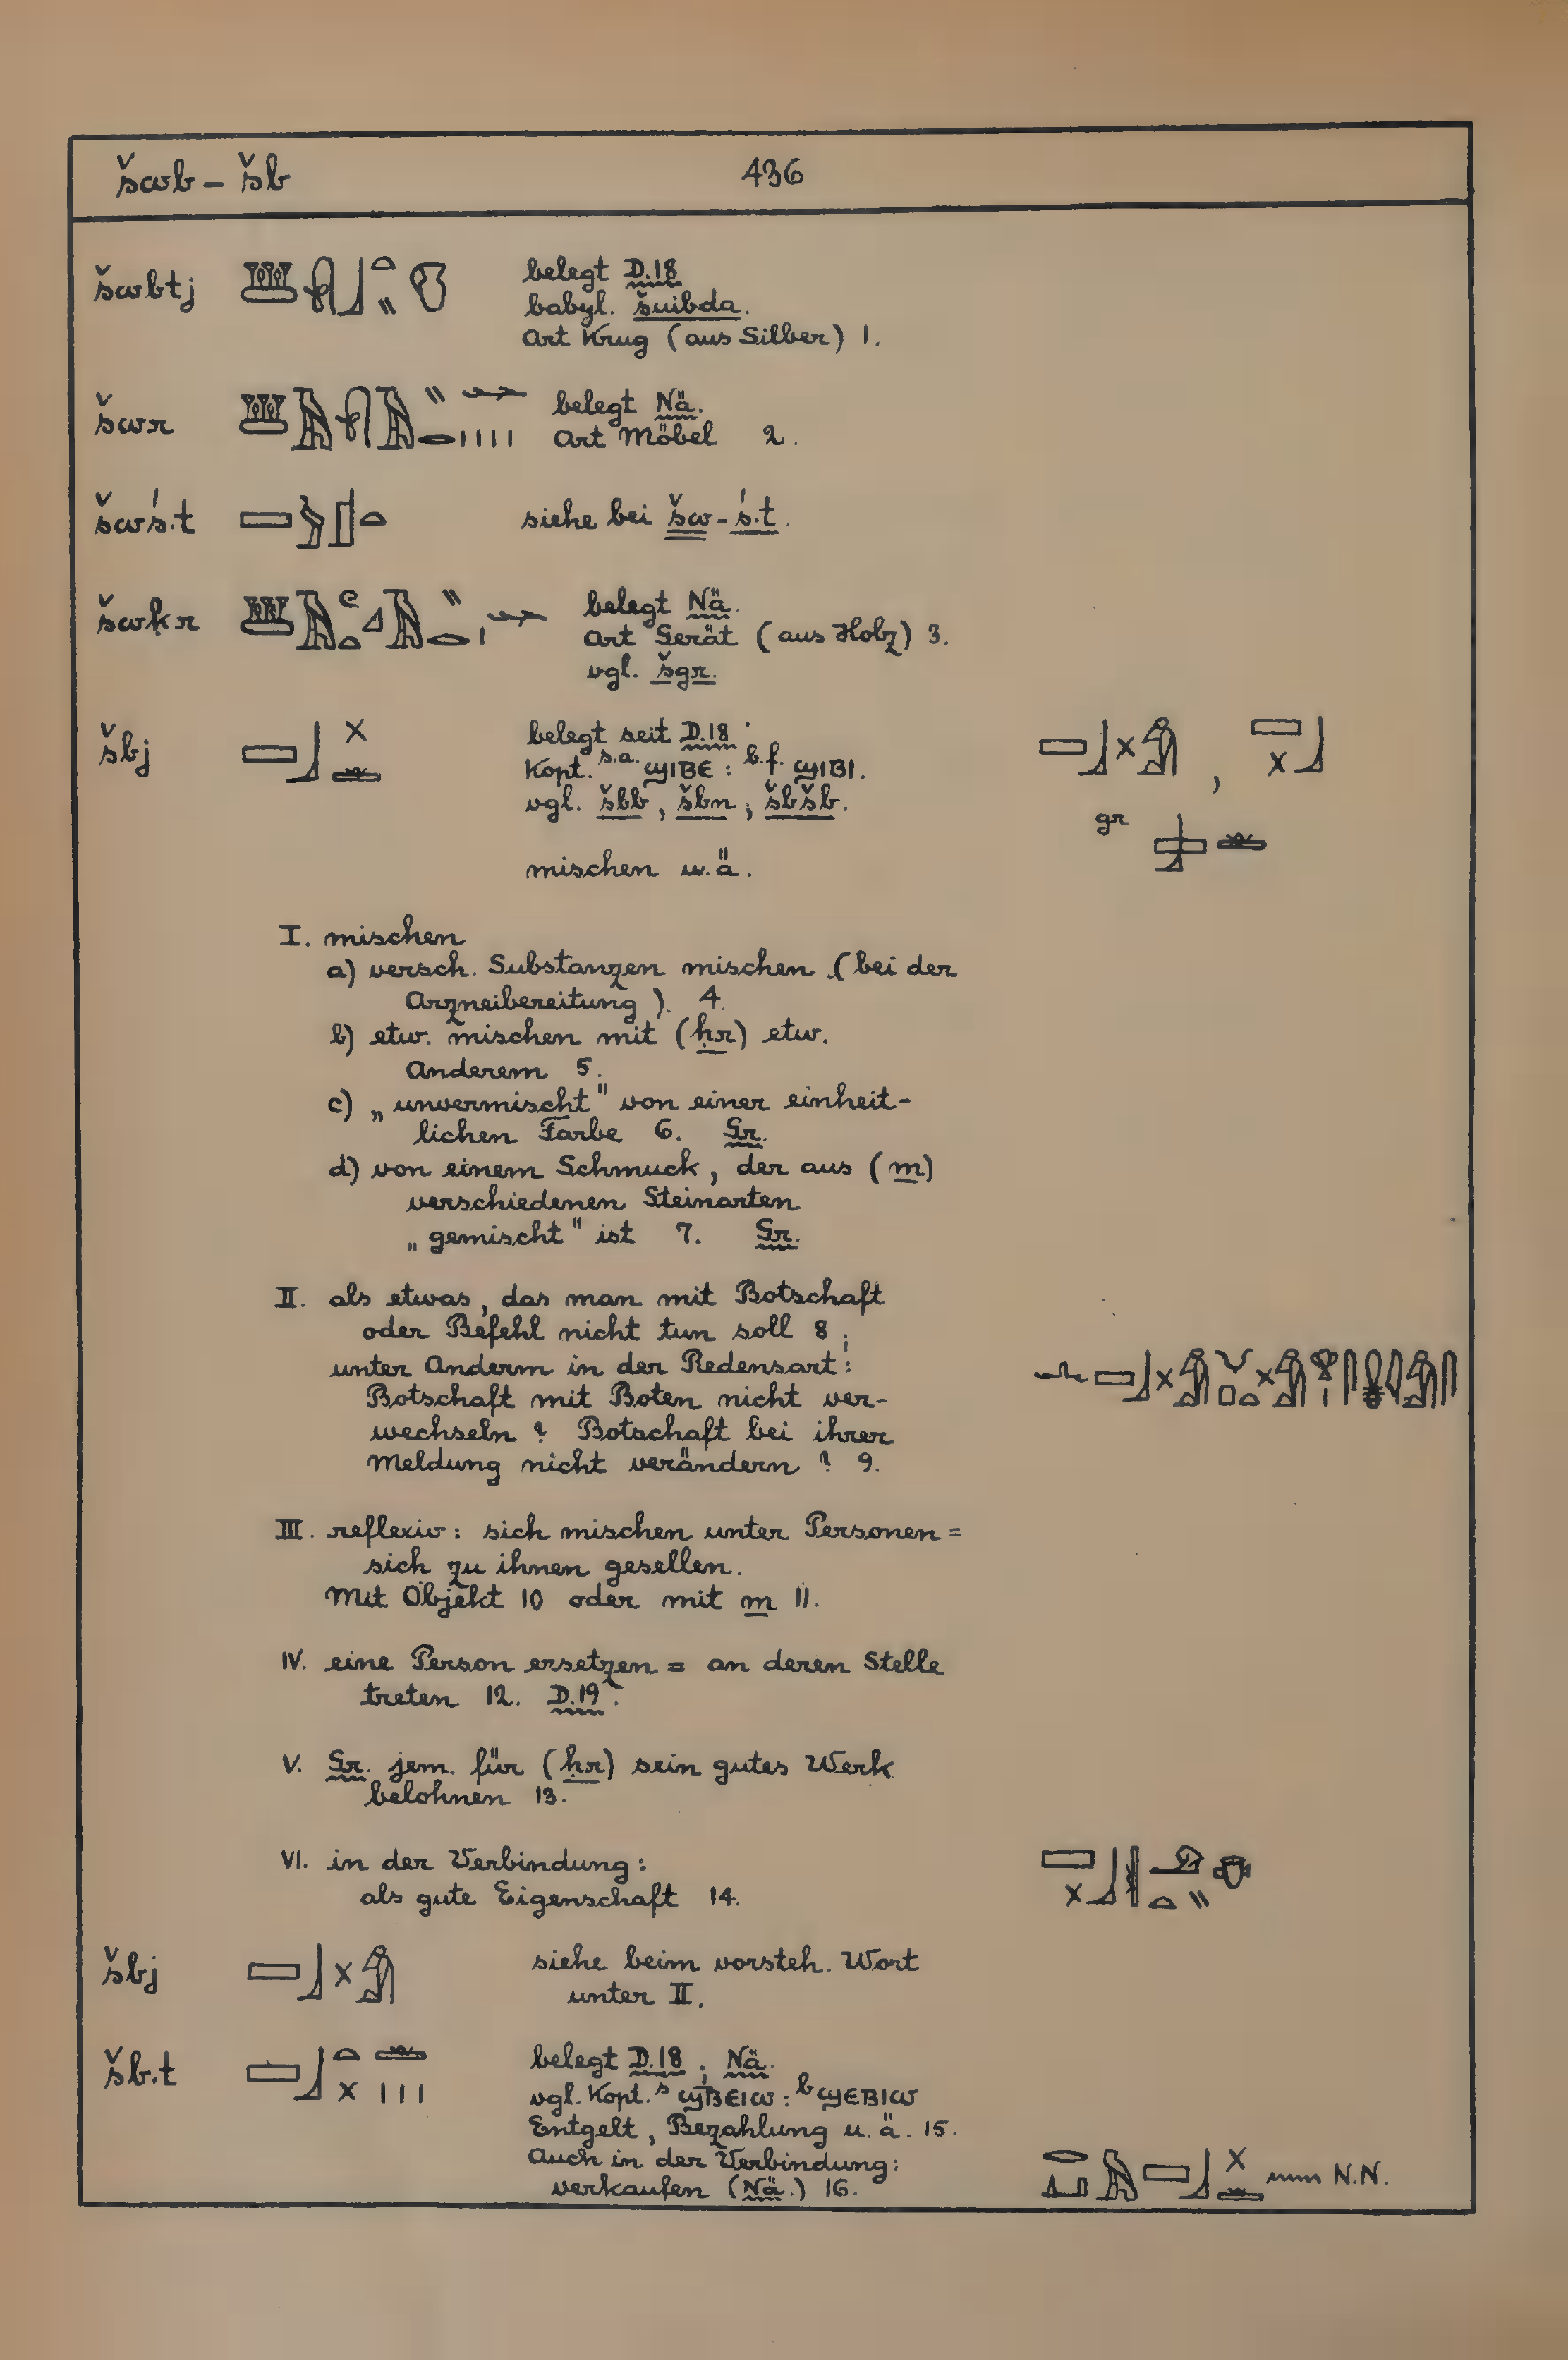 šwb – šb 436
šwbtj belegt D.18
babyl. šuibda.
Art Krug (aus Silber) 1.
šwr belegt Nä.
Art Möbel 2.
šwś.t siehe bei šw-ś.t.
šwkr belegt Nä.
Art Gerät (aus Holz) 3.
vgl. šgr.
šbj belegt seit D.18
Kopt. s.a. ϣⲓⲃⲉ : b.f. ϣⲓⲃⲓ.
vgl. šbb, šbn; šbšb.
gr
mischen u.ä.
I. mischen
a) versch. Substanzen mischen (bei der
Arzneibereitung). 4.
b) etw. mischen mit (ḥr) etw.
Anderem 5.
c) „unvermischt" von einer einheit-
lichen Farbe 6. Gr.
d) von einem Schmuck, der aus (m)
verschiedenen Steinarten
„gemischt" ist 7. Gr.
II. als etwas, das man mit Botschaft
oder Befehl nicht tun soll 8;
unter Anderm in der Redensart:
Botschaft mit Boten nicht ver-
wechseln? Botschaft bei ihrer
Meldung nicht verändern? 9.
III. reflexiv: sich mischen unter Personen =
sich zu ihnen gesellen.
Mit Objekt 10 oder mit m 11.
IV. eine Person ersetzen = an deren Stelle
treten 12. D.19.
V. Gr. jem. für (ḥr) sein gutes Werk
belohnen 13.
VI. in der Verbindung:
als gute Eigenschaft 14.
šbj siehe beim vorsteh. Wort
unter II.
šb.t belegt D.18; Nä.
vgl. Kopt. s ϣⲃⲉⲓⲱ : b ϣⲉⲃⲓⲱ
Entgelt, Bezahlung u.ä. 15.
Auch in der Verbindung:
verkaufen (Nä.) 16. N.N.